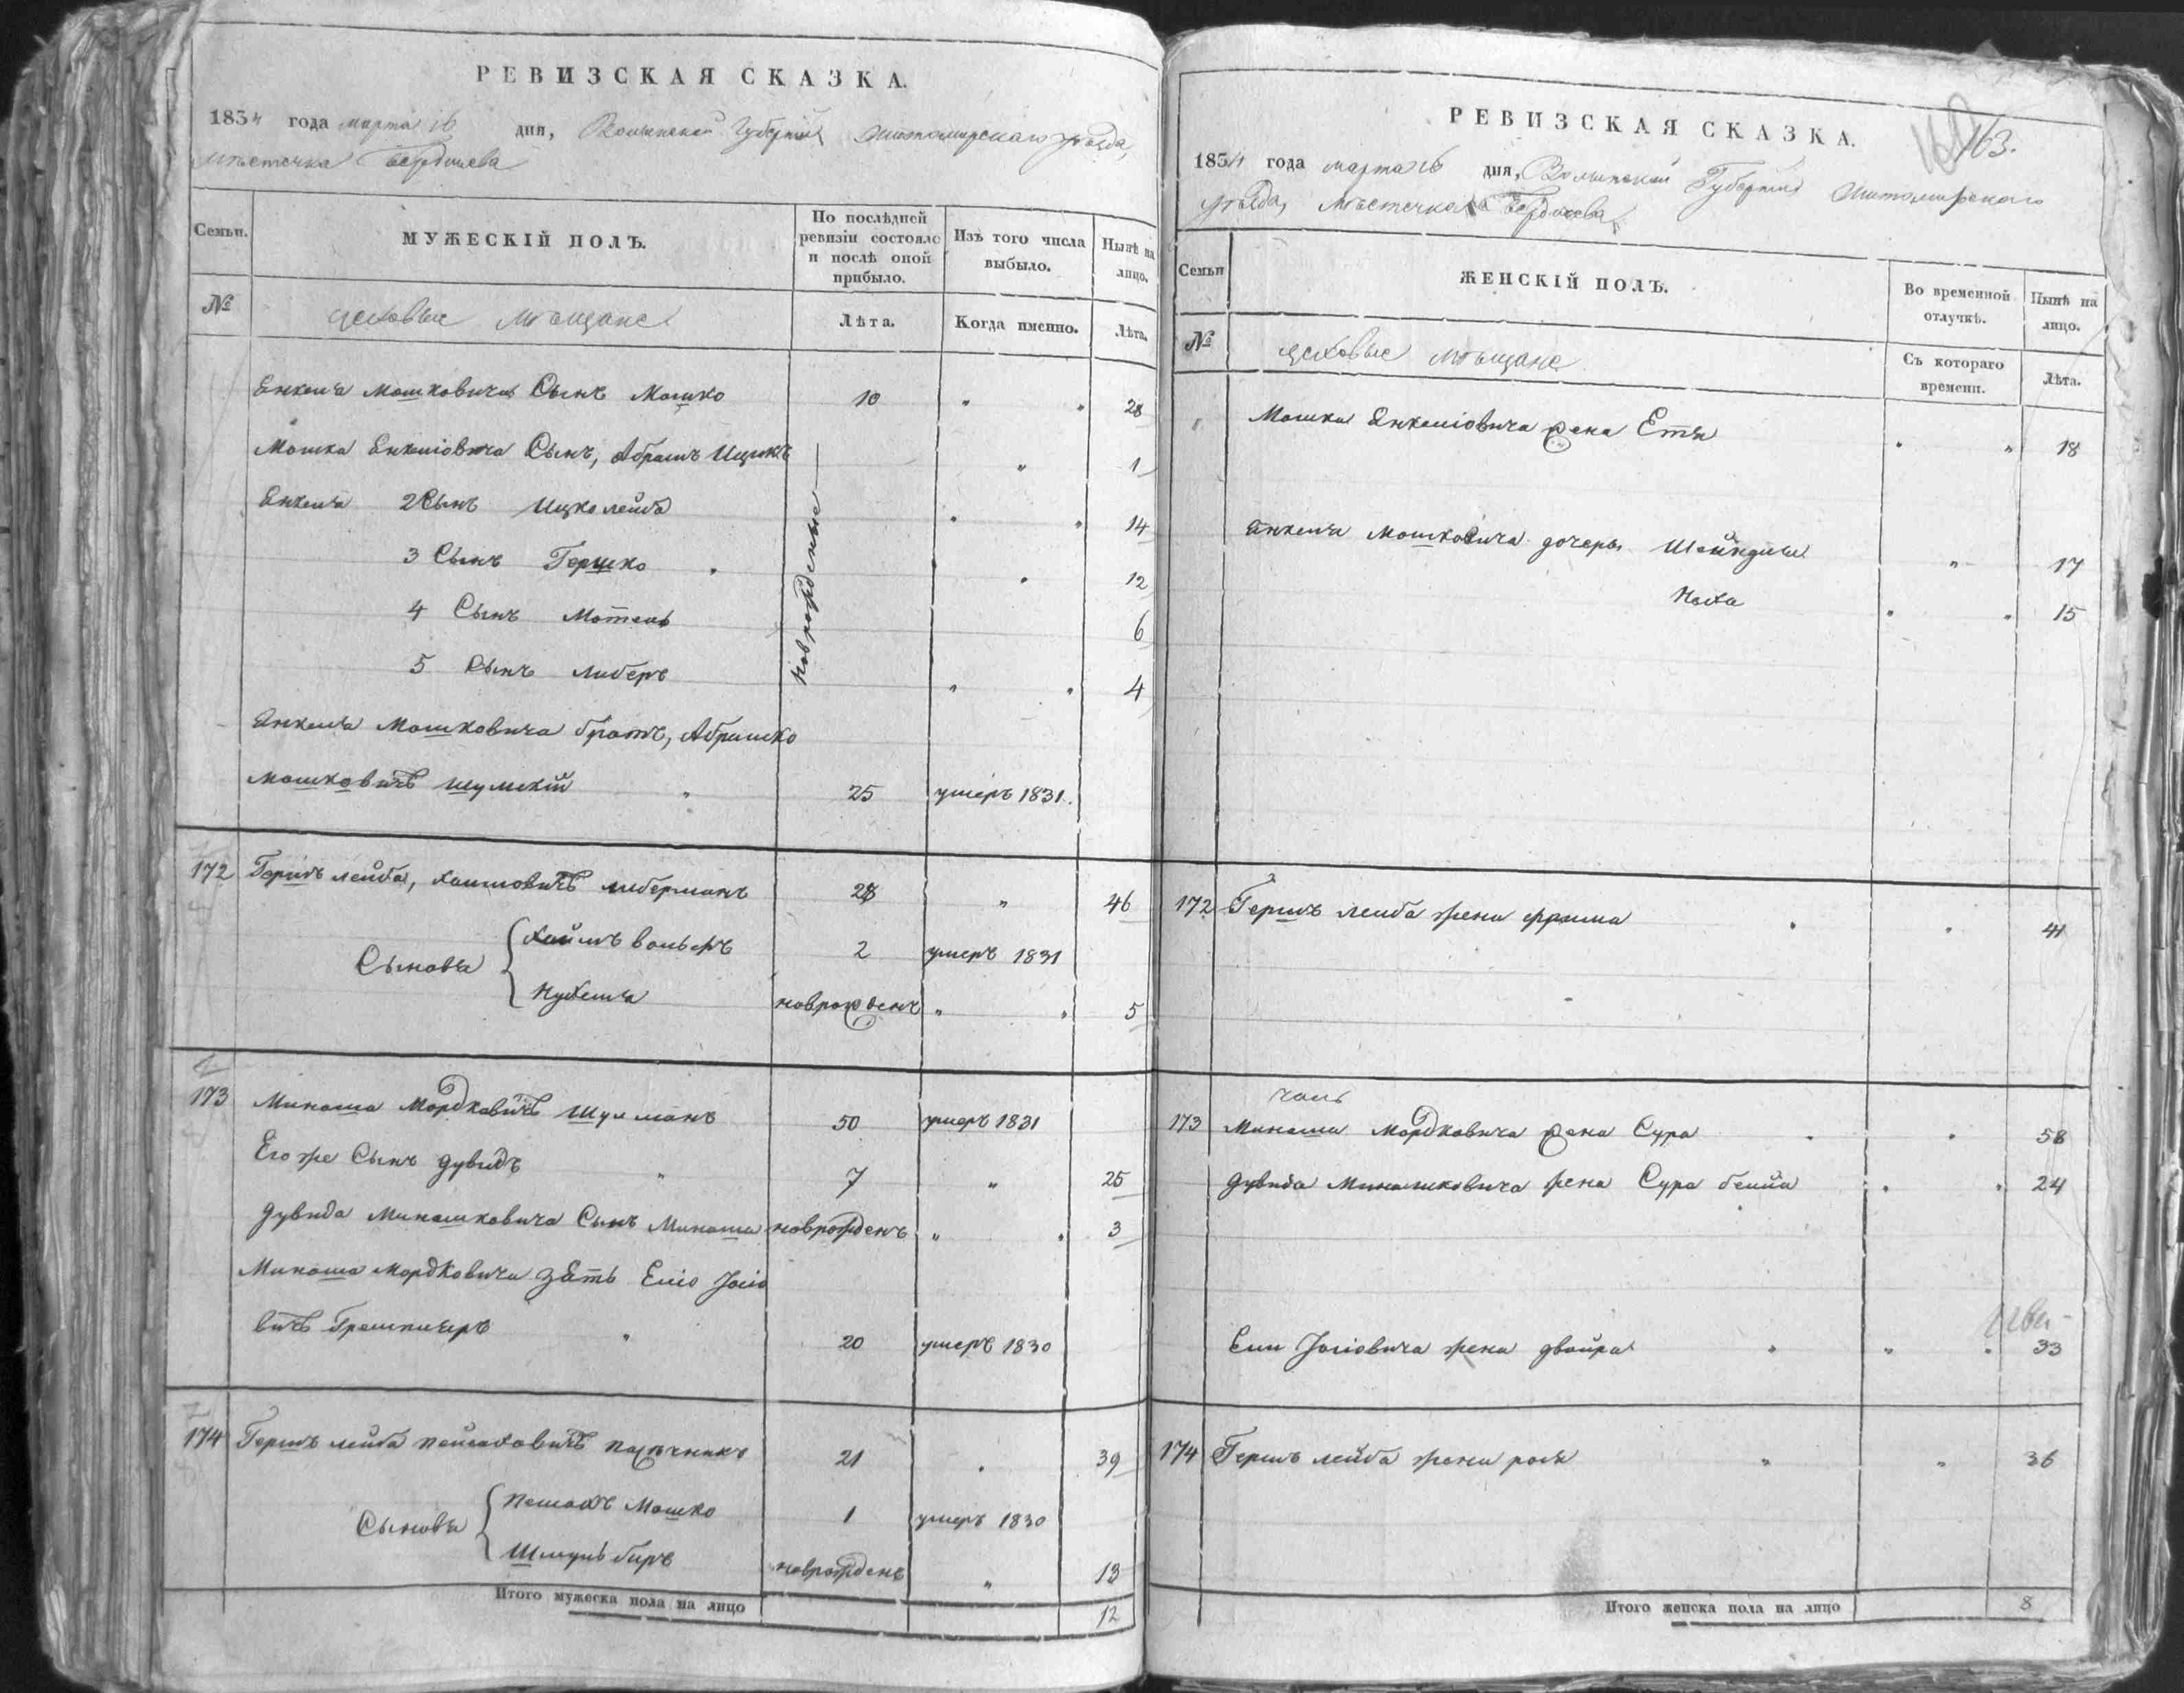 РЕВИЗСКАЯ СКАЗКА.
1834 года марта 16 дня, Волынской Губерніи Житомирскаго уѣзда,
мѣстечка Бердичева
Семьи.
МУЖЕСКІЙ ПОЛЪ.
По послѣдней ревизіи состояло и послѣ оной прибыло.
Изъ того числа выбыло.
Нынѣ на лицо.
№
цеховые мѣщане
Лѣта.
Когда именно.
Лѣта.
Енкеля Мошковича Сынъ Мошко 10 " " 28
Мошка Енкеліовича Сынъ, Абрамъ Ицикъ " 1
Енкеля 2 Сынъ Ицко лейба " " 14
3 Сынъ Гершко " " 12
4 Сынъ Мотель 6
5 Сынъ Либеръ " " 4
новрожденные
Енкеля Мошковича братъ, Абрашко
Мошковичъ Шумскій " 25 умеръ 1831.
172 Гершъ лейба, Хаимовичъ Либерманъ 28 " 46
Сыновья
Хаимъ вольфъ 2 умеръ 1831
Нухемъ новрожденъ " " 5
173 Минаша Мордковичъ Шулманъ 50 умеръ 1831
Его же Сынъ дувидъ " 7 " 25
дувида Минашковича Сынъ Минаша новрожденъ " " 3
Минаша Мордковича зять Еліо Іосіо
вичъ " 20 умеръ 1830
174 Гершъ лейба пейсаховичъ 21 " 39
Сыновья
пейсахъ Мошко 1 умеръ 1830
Шмуль беръ новрожденъ " 13
Итого мужеска пола на лицо 12
РЕВИЗСКАЯ СКАЗКА.
163.
1834 года марта 16 дня, Волынской Губерніи Житомирскаго
уѣзда, мѣстечка Бердичева
Семьи
ЖЕНСКІЙ ПОЛЪ.
Во временной отлучкѣ.
Нынѣ на лицо.
№
цеховые мѣщане
Съ котораго времени.
Лѣта.
Мошка Енкеліовича жена Етя " " 18
Енкеля Мошковича дочери Шейндля " 17
Хая " " 15
172 Гершъ лейба жена фрима " " 41
173 Минаши Мордковича жена Сура " " 58
дувида Минашковича жена Сура бейла " " 24
Ели Іосіовича жена двойра " " " 33
174 Гершъ лейба жена рося " " 36
Итого женска пола на лицо 8